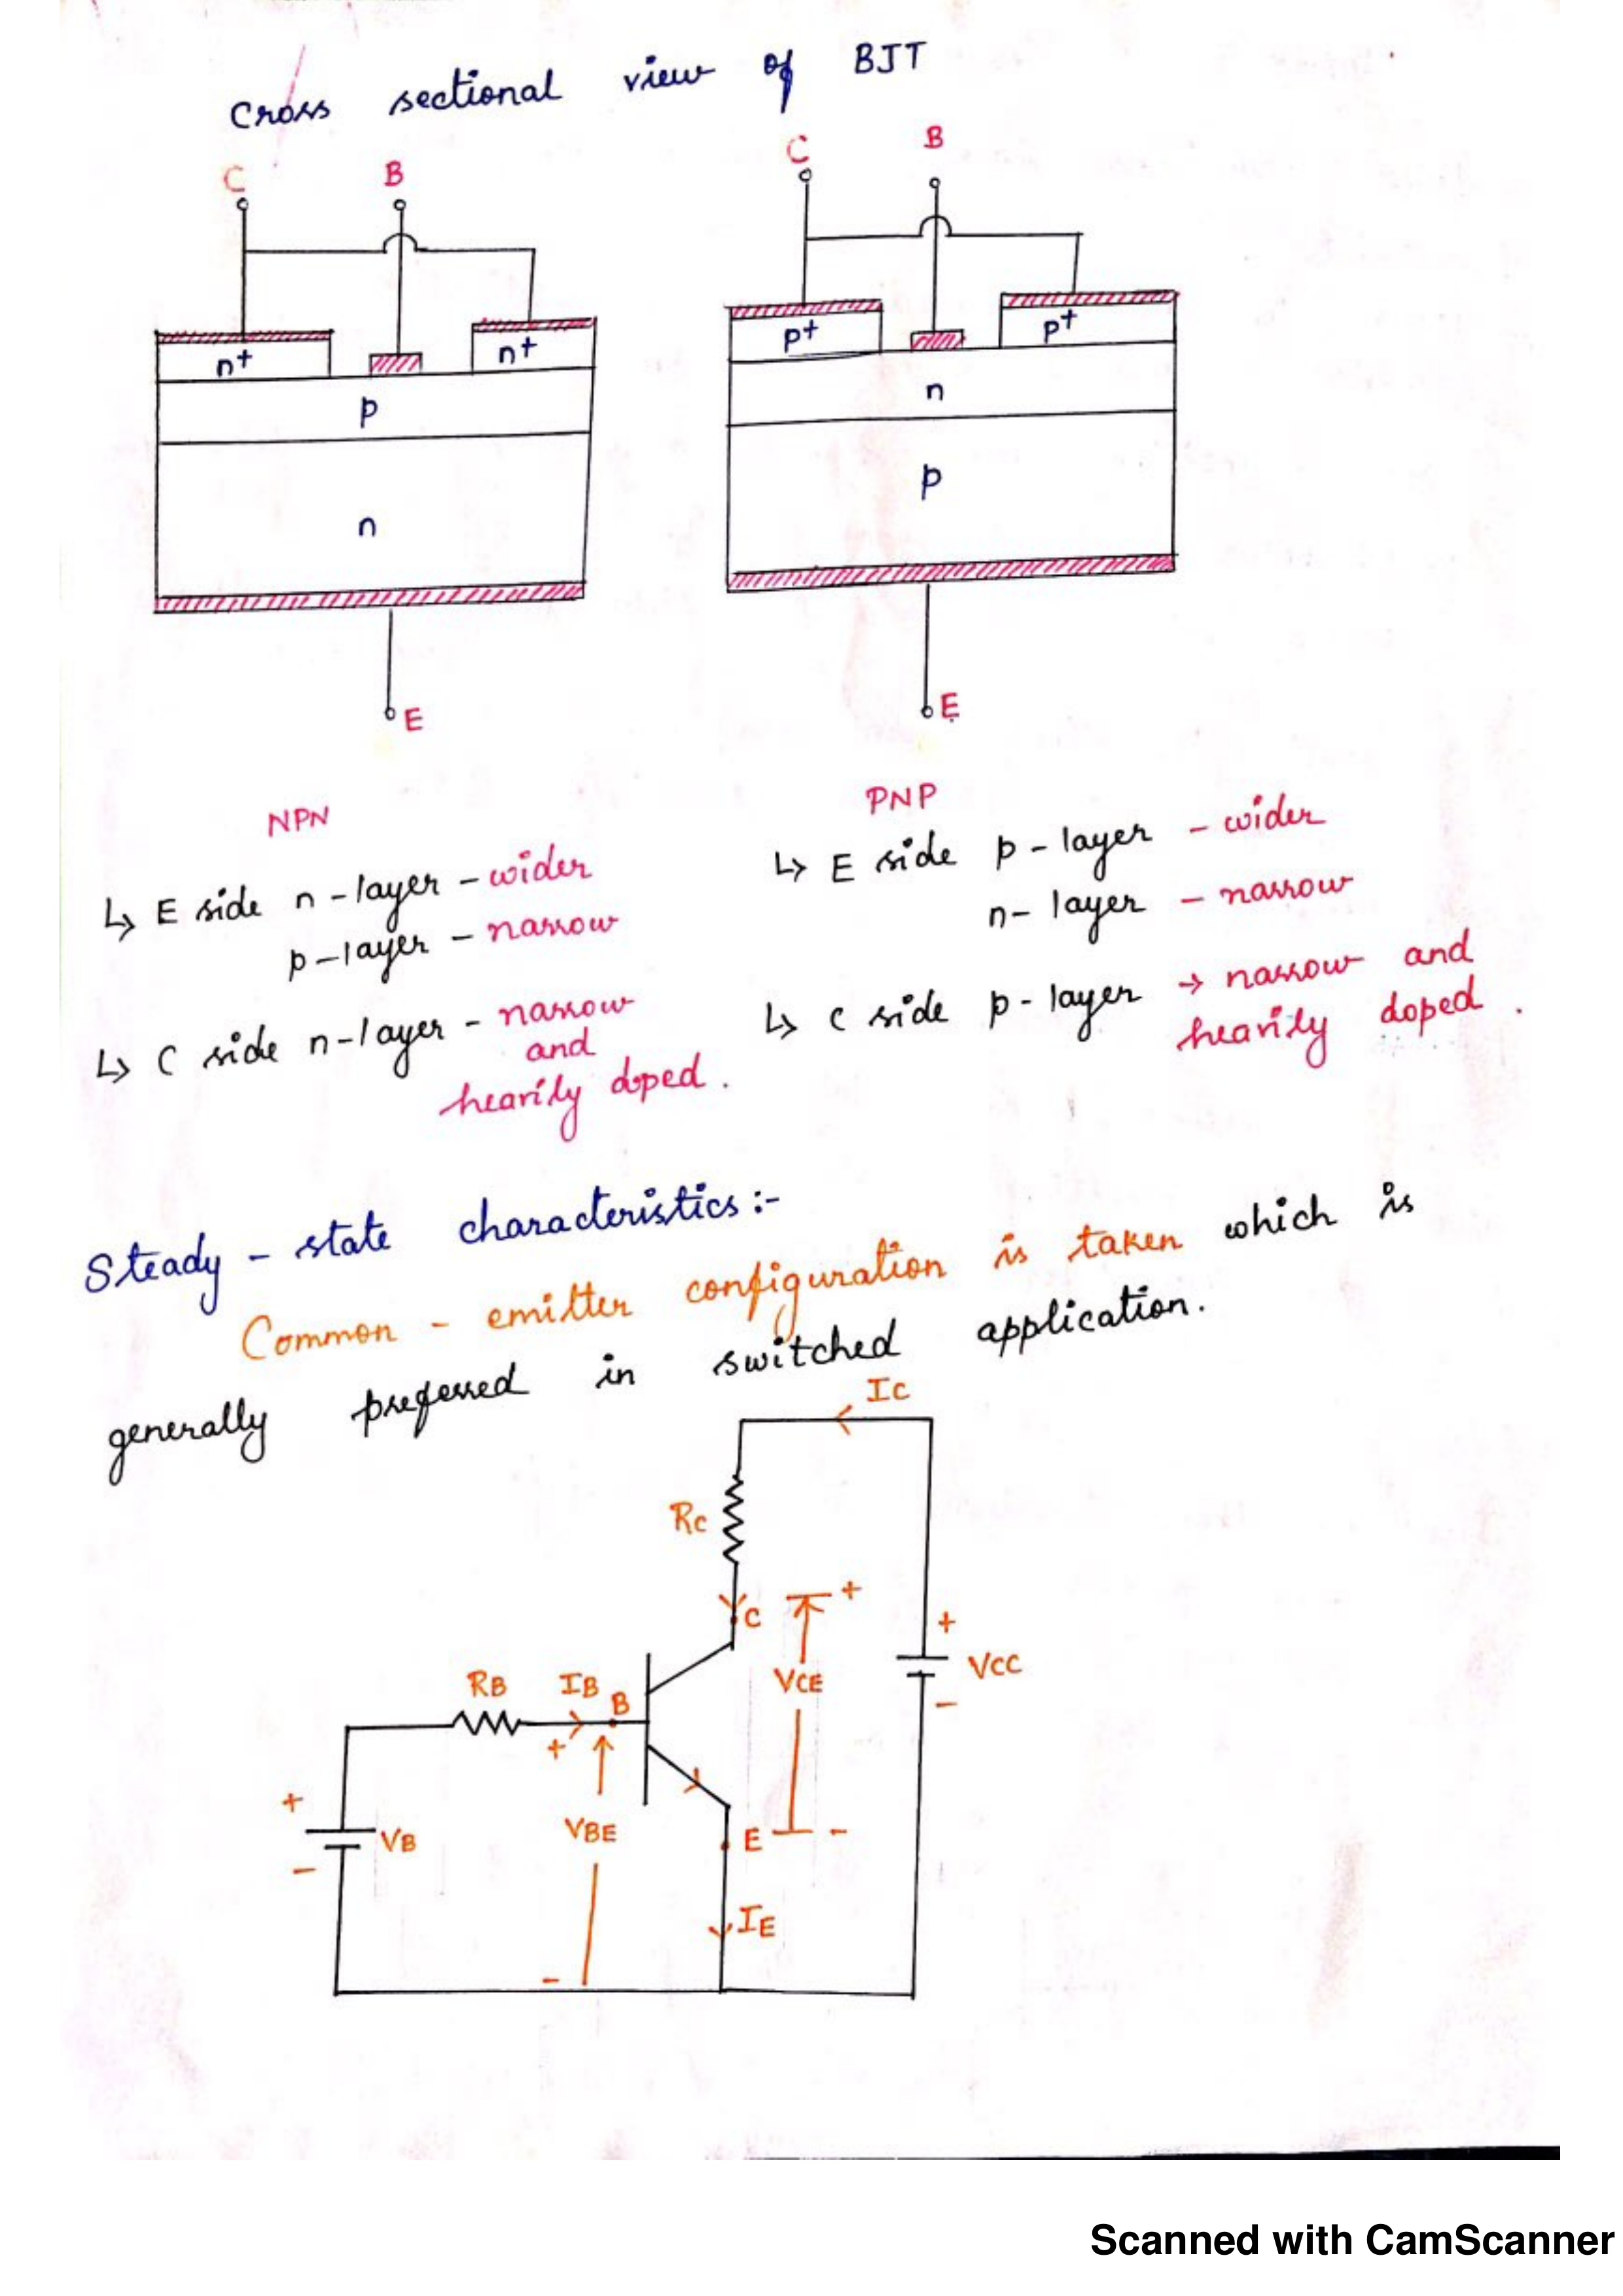 Cross sectional view of BJT
C B
n+ n+
p
n
E
C B
p+ p+
n
p
E
NPN
↳ E side n-layer - wider
p-layer - narrow
↳ C side n-layer - narrow
and
heavily doped.
PNP
↳ E side p-layer - wider
n-layer - narrow
↳ C side p-layer → narrow and
heavily doped.
Steady-state characteristics:-
Common-emitter configuration is taken which is
generally preferred in switched application.
IC
RC
C +
+
VCE VCC
-
RB IB B
+
+
VB VBE E -
-
IE
-
Scanned with CamScanner